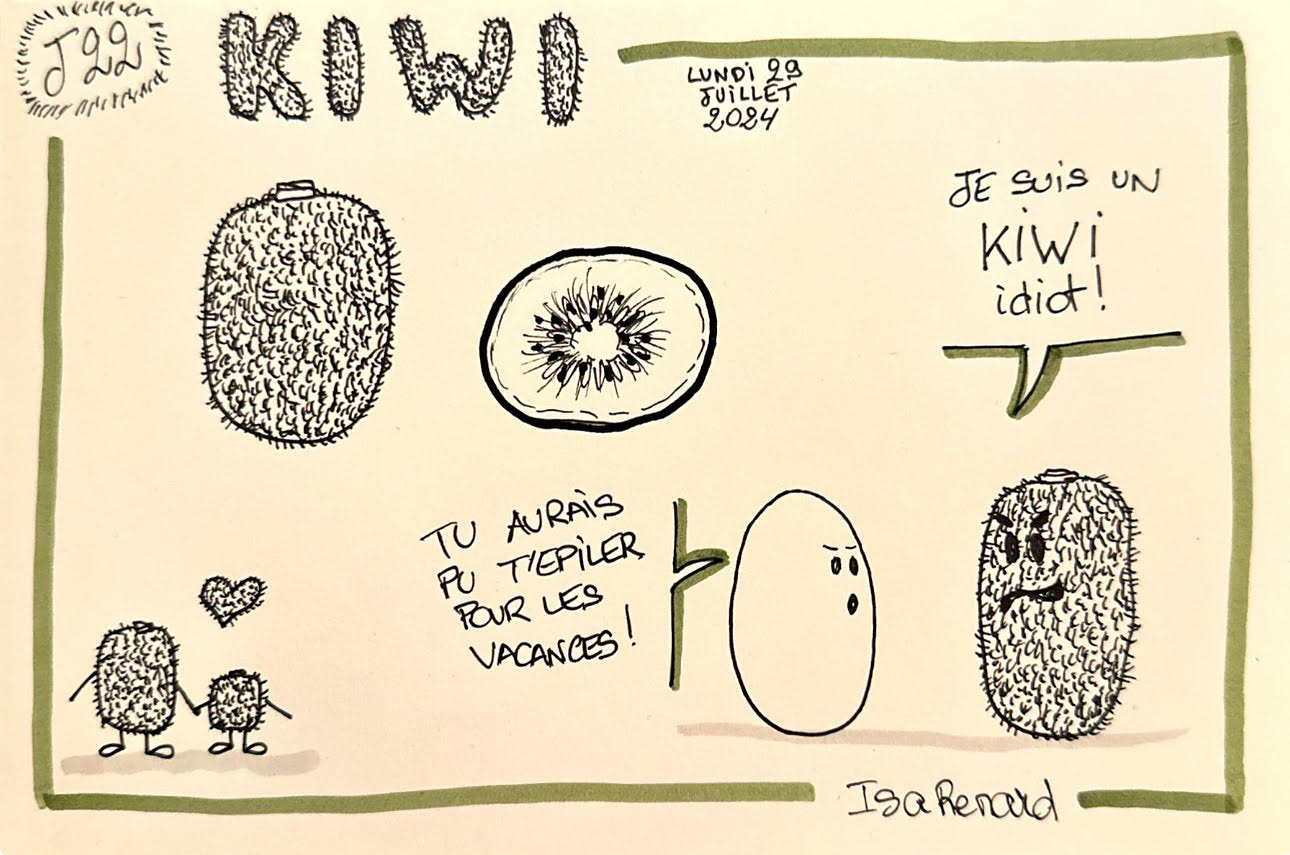 J22
KIWI
LUNDI 29
JUILLET
2024
JE SUIS UN
KIWI
idiot!
TU AURAIS
PU T'EPILER
POUR LES
VACANCES!
IsaRenard